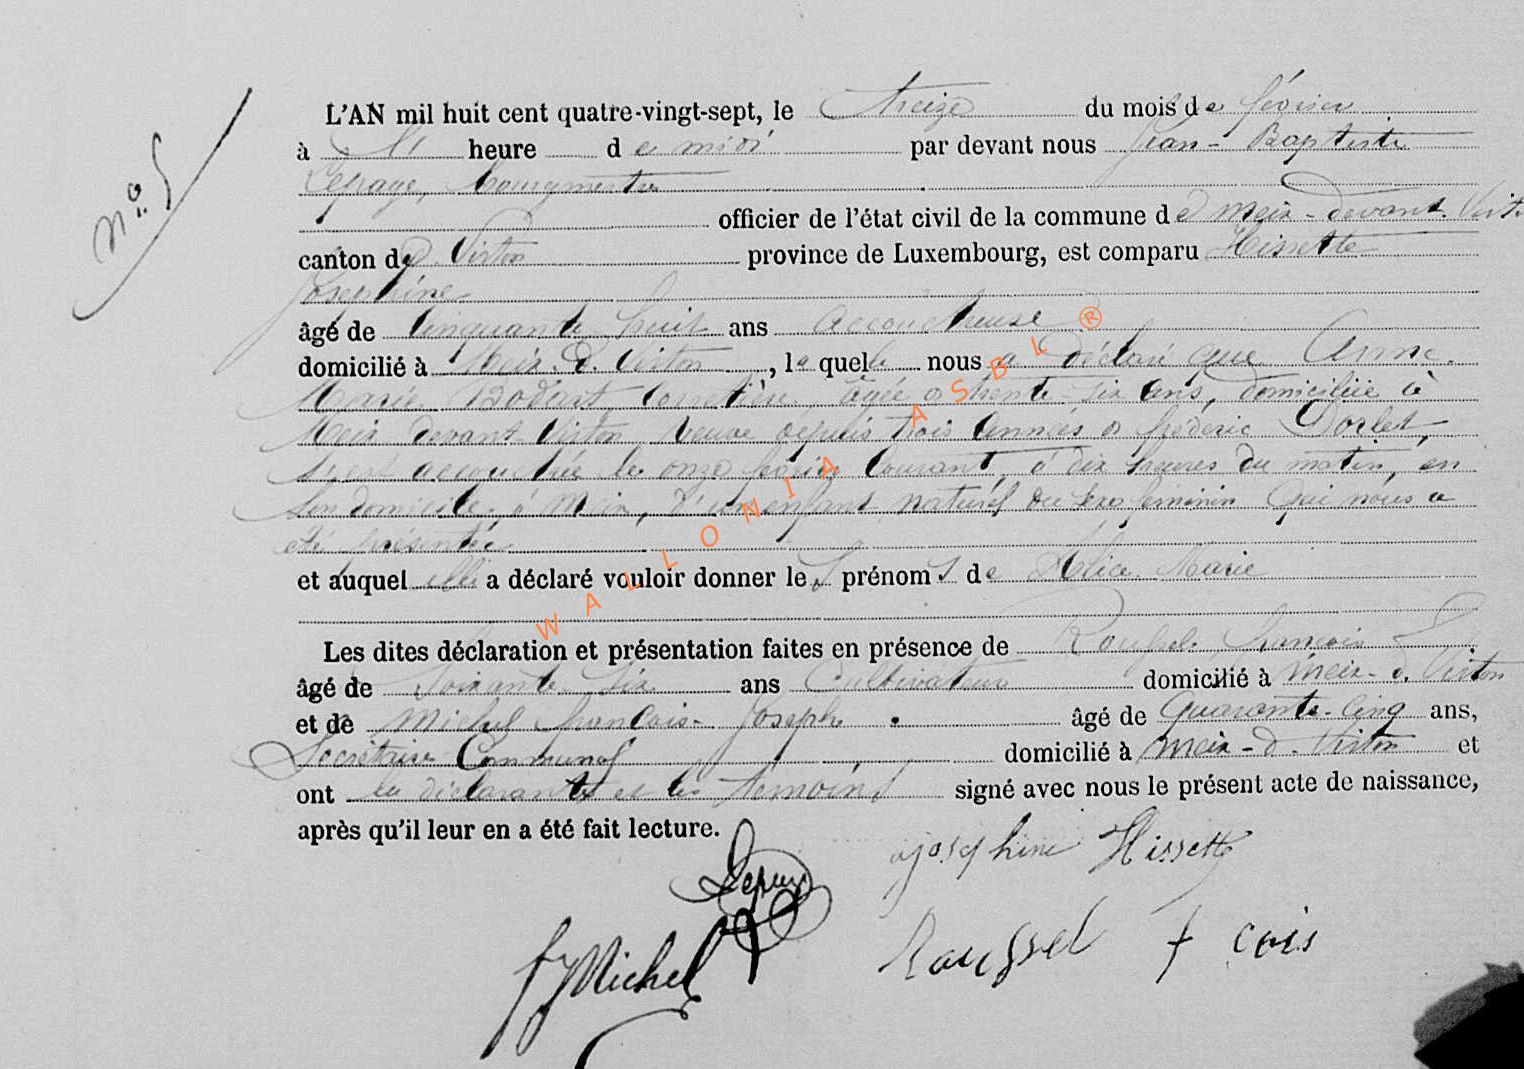 N°. 5
L'AN mil huit cent quatre-vingt-sept, le treize du mois de février
à heure de midi par devant nous Jean-Baptiste
Lepage, bourgmestre
officier de l'état civil de la commune de Meix-devant-Virt
canton de Virton province de Luxembourg, est comparu Hissette
Joséphine
âgé de cinquante huit ans accoucheuse
domicilié à Meix. d. Virton, la quelle nous a déclaré que Anne
Marie Bodart âgée de trente-six ans, domiciliée à
Meix devant Virton, veuve depuis trois années de fréderic Dorlet,
s'est accouchée le onze février courant, à dix heures du matin, en
son domicile, à Meix, d'un enfant naturel du sexe féminin qui nous a
été présentée
et auquel elle a déclaré vouloir donner les prénoms de Alice Marie
Les dites déclaration et présentation faites en présence de Roussel François
âgé de soixante-six ans Cultivateur domicilié à Meix-d. Virton
et de Michel François-Joseph âgé de Quarante-cinq ans,
Secrétaire Communal domicilié à Meix-d. Virton et
ont la déclarante et les témoins signé avec nous le présent acte de naissance,
après qu'il leur en a été fait lecture.
Joséphine Hissette
Lepage
fJ Michel
Roussel f cois
WALLONIA ASBL ®